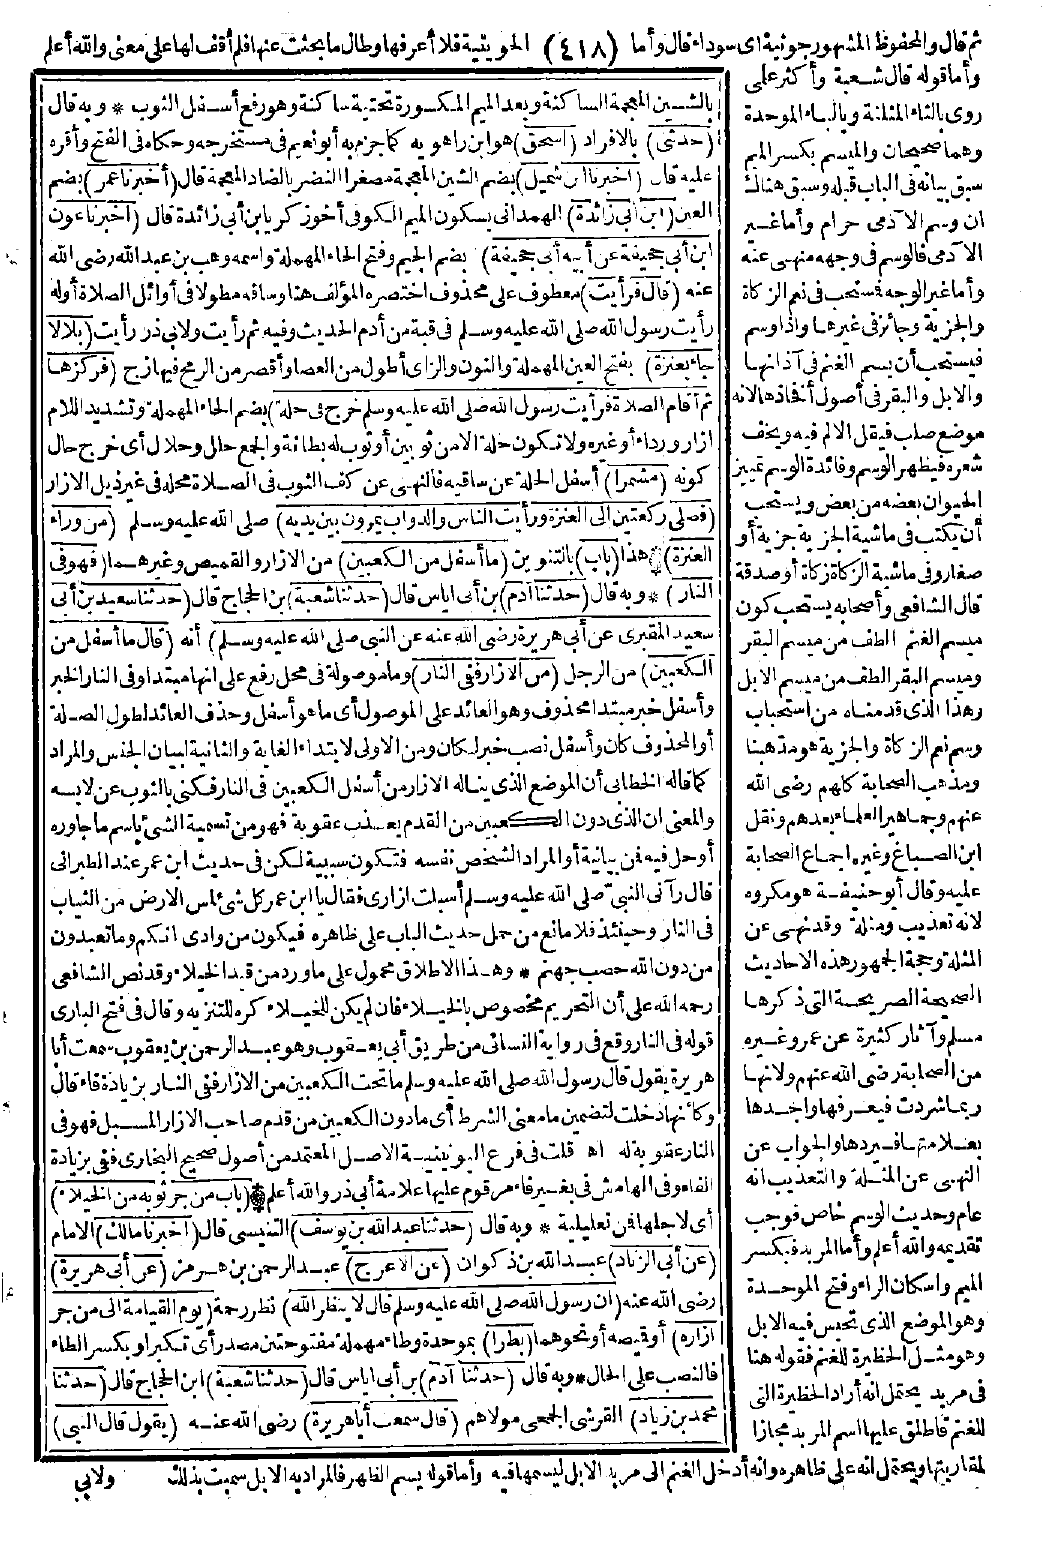 ثم قال والمحفوظ المشهور جونية اى سوداء قال وأما (٤١٨) الحويثية فلا أعرفها وطال ما بحثت عنها فلم أقف لها على معنى والله أعلم
وأما قوله قال شعبة وأكثر على
روى بالثاء المثلثة وبالباء الموحدة
وهما صحيحان والميسم بكسر الميم
سبق بيانه فى الباب قبله وسبق هناك
ان وسم الآدمى حرام وأما غير
الآدمى فالوسم فى وجهه منهى عنه
وأما غير الوجه فمستحب فى نعم الزكاة
والجزية وجائز فى غيرها واذا وسم
فيستحب أن يسم الغنم فى آذانها
والابل والبقر فى أصول أفخاذها لانه
موضع صلب فيقل الالم فيه ويخف
شعره فيظهر الوسم وفائدة الوسم تمييز
الحيوان بعضه من بعض ويستحب
أن يكتب فى ماشية الجزية جزية أو
صغار وفى ماشية الزكاة زكاة أو صدقة
قال الشافعى وأصحابه يستحب كون
ميسم الغنم الطف من ميسم البقر
وميسم البقر الطف من ميسم الابل
وهذا الذى قدمناه من استحباب
وسم نعم الزكاة والجزية هو مذهبنا
ومذهب الصحابة كلهم رضى الله
عنهم وجماهير العلماء بعدهم ونقل
ابن الصباغ وغيره اجماع الصحابة
عليه وقال أبو حنيفة هو مكروه
لانه تعذيب ومثلة وقد نهى عن
المثلة وحجة الجمهور هذه الاحاديث
الصحيحة الصريحة التى ذكرها
مسلم وآثار كثيرة عن عمر وغيره
من الصحابة رضى الله عنهم ولانها
ربما شردت فيعرفها واجدها
بعلامتها فيردها والجواب عن
النهى عن المثلة والتعذيب انه
عام وحديث الوسم خاص فوجب
تقديمه والله أعلم وأما المربد فبكسر
الميم واسكان الراء وفتح الموحدة
وهو الموضع الذى تحبس فيه الابل
وهو مثل الحظيرة للغنم فقوله هنا
فى مربد يحتمل انه أراد الحظيرة التى
للغنم فاطلق عليها اسم المربد مجازا
لمقاربتها ويحتمل انه على ظاهره وانه أدخل الغنم الى مربد الابل ليسمها فيه وأما قوله يسم الظهر فالمراد به الابل سميت بذلك
ولابى
بالشين المعجمة الساكنة وبعد الميم المكسورة تحتية ساكنة وهو رفع أسفل الثوب * وبه قال
(حدثنى) بالافراد (اسحق) هو ابن راهويه كما جزم به أبو نعيم فى مستخرجه وحكاه فى الفتح وأقره
عليه قال (اخبرنا ابن شميل) بضم الشين المعجمة مصغرا النضر بالضاد المعجمة قال (أخبرنا عمر) بضم
العين (ابن أبى زائدة) الهمدانى بسكون الميم الكوفى أخو زكريا بن أبى زائدة قال (اخبرنا عون
ابن أبى جحيفة عن أبيه أبى جحيفة) بضم الجيم وفتح الحاء المهملة واسمه وهب بن عبد الله رضى الله
عنه (قال فرأيت) معطوف على محذوف اختصره المؤلف هنا وساقه مطولا فى أوائل الصلاة أوله
رأيت رسول الله صلى الله عليه وسلم فى قبة من أدم الحديث وفيه ثم رأيت ولابى ذر رأيت (بلالا
جاء بعنزة) بفتح العين المهملة والنون والزاى أطول من العصا وأقصر من الرمح فيها زج (فركزها
ثم أقام الصلاة فرأيت رسول الله صلى الله عليه وسلم خرج فى حلة) بضم الحاء المهملة وتشديد اللام
ازار ورداء أو غيره ولا تكون حلة الا من ثوبين أو ثوب له بطانة والجمع حلل وحلال أى خرج حال
كونه (مشمرا) أسفل الحلة عن ساقيه فالنهى عن كف الثوب فى الصلاة محله فى غير ذيل الازار
(فصلى ركعتين الى العنزة ورأيت الناس والدواب يمرون بين يديه) صلى الله عليه وسلم (من وراء
العنزة) * هذا (باب) بالتنوين (ما أسفل من الكعبين) من الازار والقميص وغيرهما (فهو فى
النار) * وبه قال (حدثنا آدم) بن أبى اياس قال (حدثنا شعبة) بن الحجاج قال (حدثنا سعيد بن أبى
سعيد المقبرى عن أبى هريرة رضى الله عنه عن النبى صلى الله عليه وسلم) أنه (قال ما أسفل من
الكعبين) من الرجل (من الازار ففى النار) وما موصولة فى محل رفع على انها مبتدا وفى النار الخبر
وأسفل خبر مبتدا محذوف وهو العائد على الموصول أى ما هو أسفل وحذف العائد لطول الصلة
أو المحذوف كان وأسفل نصب خبرا لكان ومن الاولى لابتداء الغاية والثانية لبيان الجنس والمراد
كما قاله الخطابى أن الموضع الذى يناله الازار من أسفل الكعبين فى النار فكنى بالثوب عن لابسه
والمعنى ان الذى دون الكعبين من القدم يعذب عقوبة فهو من تسمية الشئ باسم ما جاوره
أو حل فيه فمن بيانية أو المراد الشخص نفسه فتكون سببية لكن فى حديث ابن عمر عند الطبرانى
قال رآنى النبى صلى الله عليه وسلم أسبلت ازارى فقال يا ابن عمر كل شئ لمس الارض من الثياب
فى النار وحينئذ فلا مانع من حمل حديث الباب على ظاهره فيكون من وادى انكم وما تعبدون
من دون الله حصب جهنم * وهذا الاطلاق محمول على ما ورد من قيد الخيلاء وقد نص الشافعى
رحمه الله على أن التحريم مخصوص بالخيلاء فان لم يكن للخيلاء كره للتنزيه وقال فى فتح البارى
قوله فى النار وقع فى رواية النسائى من طريق أبى يعقوب وهو عبد الرحمن بن يعقوب سمعت أبا
هريرة يقول قال رسول الله صلى الله عليه وسلم ما تحت الكعبين من الازار ففى النار بزيادة فاء قال
وكأنها دخلت لتضمين ما معنى الشرط أى ما دون الكعبين من قدم صاحب الازار المسبل فهو فى
النار عقوبة له اه قلت فى فرع اليونينية الاصل المعتمد من أصول صحيح البخارى ففى بزيادة
الفاء وفى الهامش فى بغير فاء مرقوم عليها علامة أبى ذر والله أعلم * (باب من جر ثوبه من الخيلاء)
أى لاجلها فمن تعليلية * وبه قال (حدثنا عبد الله بن يوسف) التنيسى قال (أخبرنا مالك) الامام
(عن أبى الزناد) عبد الله بن ذكوان (عن الاعرج) عبد الرحمن بن هرمز (عن أبى هريرة)
رضى الله عنه (ان رسول الله صلى الله عليه وسلم قال لا ينظر الله) نظر رحمة (يوم القيامة الى من جر
ازاره) أو قميصه أو نحوهما (بطرا) بموحدة وطاء مهملة مفتوحتين مصدر أى تكبرا وبكسر الطاء
فالنصب على الحال * وبه قال (حدثنا آدم) بن أبى اياس قال (حدثنا شعبة) ابن الحجاج قال (حدثنا
محمد بن زياد) القرشى الجمحى مولاهم (قال سمعت أبا هريرة) رضى الله عنه (يقول قال النبى)